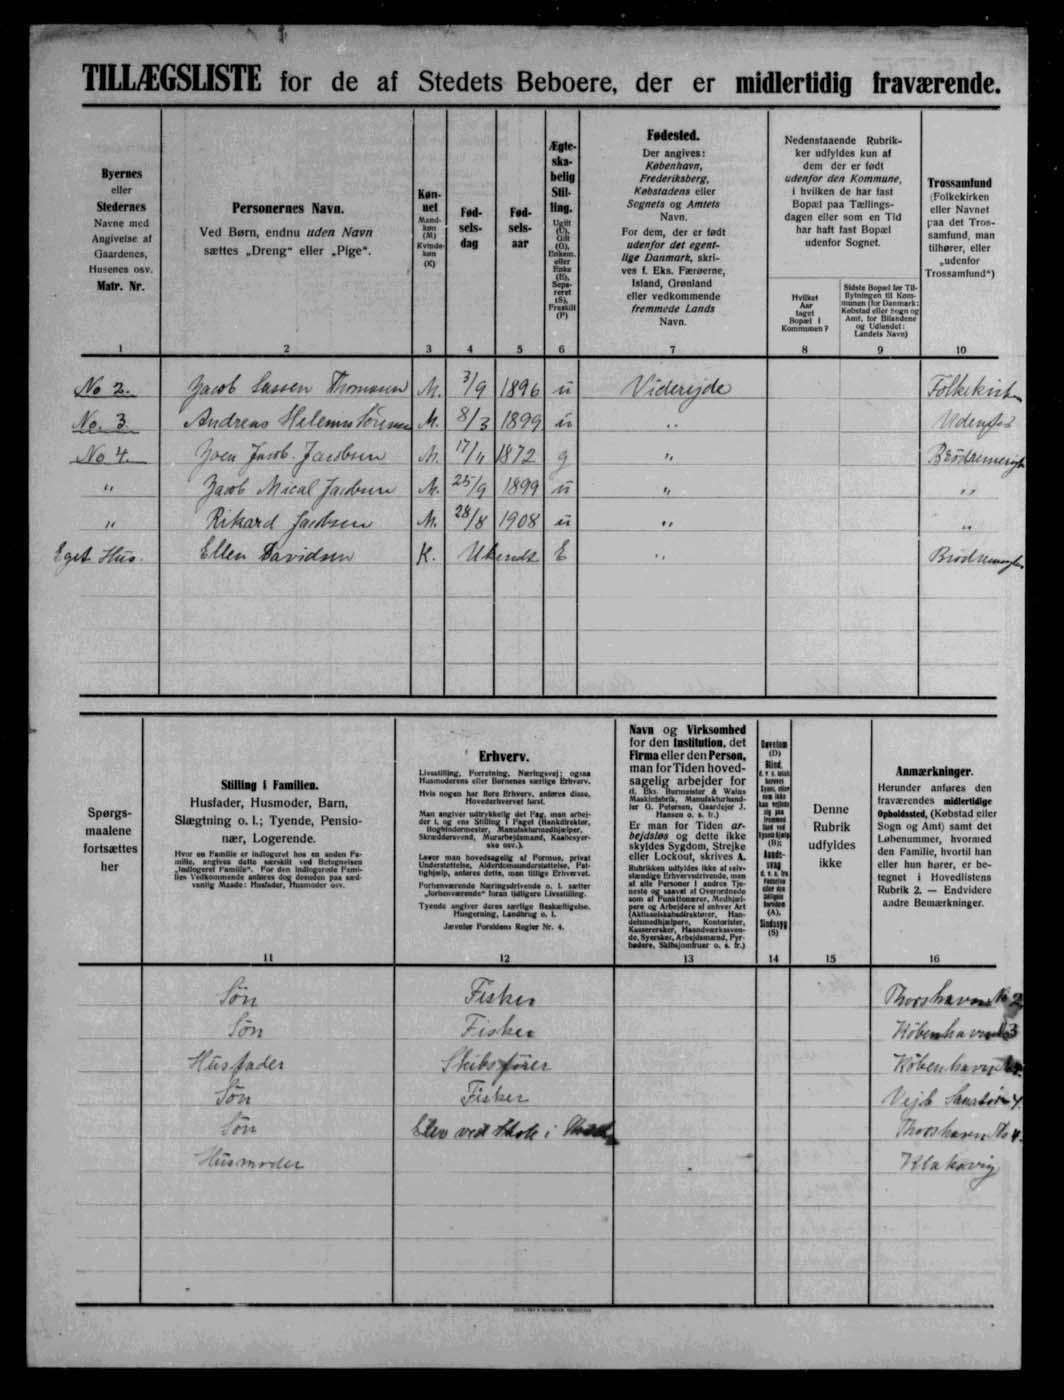 TILLÆGSLISTE for de af Stedets Beboere, der er midlertidig fraværende.
Byernes
eller
Stedernes
Navne med
Angivelse af
Gaardenes,
Husenes osv.
Matr. Nr.
Personernes Navn.
Ved Børn, endnu uden Navn
sættes „Dreng" eller „Pige".
Køn-
net
Mand-
køn
(M)
Kvinde-
køn
(K)
Fød-
sels-
dag
Fød-
sels-
aar
Ægte-
ska-
belig
Stil-
ling.
Ugift
(U),
Gift
(G),
Enkem.
eller
Enke
(E),
Sepa-
reret
(S),
Fraskilt
(F)
Fødested.
Der angives:
København,
Frederiksberg,
Købstadens eller
Sognets og Amtets
Navn.
For dem, der er født
udenfor det egent-
lige Danmark, skri-
ves f. Eks. Færøerne,
Island, Grønland
eller vedkommende
fremmede Lands
Navn.
Nedenstaaende Rubrik-
ker udfyldes kun af
dem der er født
udenfor den Kommune,
i hvilken de har fast
Bopæl paa Tællings-
dagen eller som en Tid
har haft fast Bopæl
udenfor Sognet.
Hvilket
Aar
taget
Bopæl i
Kommunen?
Sidste Bopæl før Til-
flytningen til Kom-
munen (for Danmark:
Købstad eller Sogn og
Amt, for Bilandene
og Udlandet:
Landets Navn)
Trossamfund
(Folkekirken
eller Navnet
paa det Tros-
samfund, man
tilhører, eller
„udenfor
Trossamfund")
1 2 3 4 5 6 7 8 9 10
No 2. Jacob Sassen Thomasen M. 3/9 1896 u Viderejde
No. 3. Andreas M. 8/3 1899 u „
No 4. Joen Jacob Jacobsen M. 17/11 1872 g „
„ Jacob Mical Jacobsen M. 25/9 1899 u „ „
„ Rikard Jacobsen M. 28/8 1908 u „ „
Eget Hus. Ellen Davidsen K. Ukendt E „
Spørgs-
maalene
fortsættes
her
Stilling i Familien.
Husfader, Husmoder, Barn,
Slægtning o. l.; Tyende, Pensio-
nær, Logerende.
Hvor en Familie er indlogeret hos en anden Fa-
milie, angives dette særskilt ved Betegnelsen
„Indlogeret Familie". For den indlogerede Fami-
lies Vedkommende anføres dog desuden paa sæd-
vanlig Maade: Husfader, Husmoder osv.
Erhverv.
Livsstilling, Forretning, Næringsvej; ogsaa
Husmoderens eller Børnenes særlige Erhverv.
Hvis nogen har flere Erhverv, anføres disse,
Hovederhvervet først.
Man angiver udtrykkelig det Fag, man arbej-
der i, og ens Stilling i Faget (Bankdirektør,
Bogbindermester, Manufakturmedhjælper,
Skræddersvend, Murarbejdsmand, Kaabesyer-
ske osv.).
Lever man hovedsagelig af Formue, privat
Understøttelse, Alderdomsunderstøttelse, Fat-
tighjælp, anføres dette, man tillige Erhvervet.
Forhenværende Næringsdrivende o. l. sætter
„forhenværende" foran tidligere Livsstilling.
Tyende angiver deres særlige Beskæftigelse.
Husgerning, Landbrug o. l.
Jævnfør Forsidens Regler Nr. 4.
Navn og Virksomhed
for den Institution, det
Firma eller den Person,
man for Tiden hoved-
sagelig arbejder for
(f. Eks. Burmeister & Wains
Maskinfabrik, Manufakturhand-
ler G. Petersen, Gaardejer J.
Hansen o. s. fr.)
Er man for Tiden ar-
bejdsløs og dette ikke
skyldes Sygdom, Strejke
eller Lockout, skrives A.
Rubrikken udfyldes ikke af selv-
stændige Erhvervsdrivende, men
af alle Personer i andres Tje-
neste og saavel af Overordnede
som af Funktionærer, Medhjæl-
pere og Arbejdere af enhver Art
(Aktieselskabsdirektører, Han-
delsmedhjælpere, Kontorister,
Kasserersker, Haandværkssven-
de, Syersker, Arbejdsmænd, Fyr-
bødere, Skibsjomfruer o. s. fr.)
Døvstum
(D)
Blind,
(B);
Aands-
svag
(A),
Sindssyg
(S)
Denne
Rubrik
udfyldes
ikke
Anmærkninger.
Herunder anføres den
fraværendes midlertidige
Opholdssted, (Købstad eller
Sogn og Amt) samt det
Løbenummer, hvormed
den Familie, hvortil han
eller hun hører, er be-
tegnet i Hovedlistens
Rubrik 2. — Endvidere
andre Bemærkninger.
11 12 13 14 15 16
Søn Fisker Thorshavn No 2
Søn Fisker København 3
Husfader Skibsfører København
Søn Fisker Vejle 4
Søn Elev ved Skole i Thorshavn No 4.
Husmoder Klaksvig